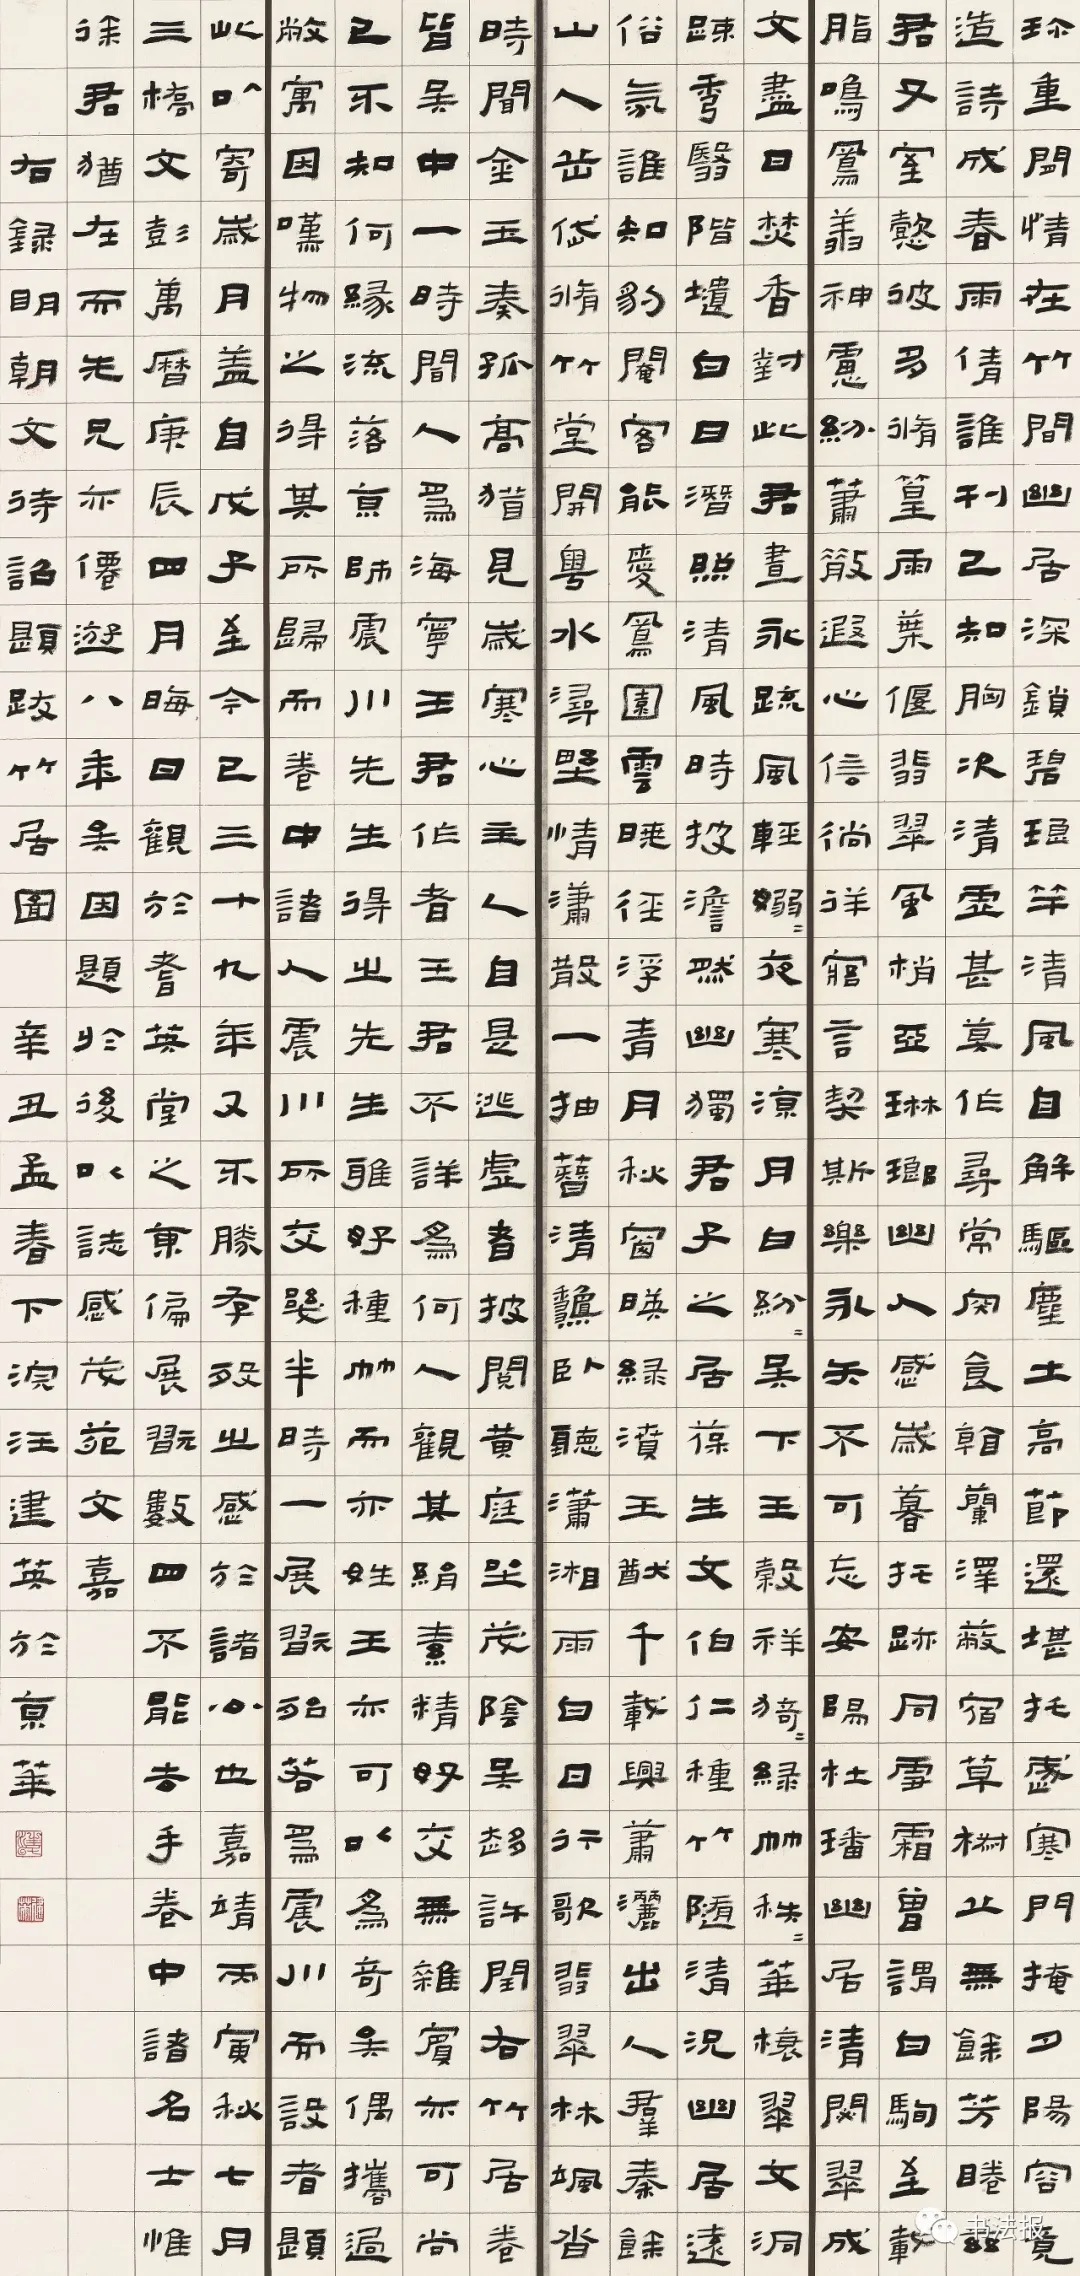 珎重閒情在竹間幽居深鎖碧琅竿清風自解驅塵土高節還堪托歲寒門掩夕陽容竟
造詩成春雨倩誰刊已知胸次清虛甚莫作尋常肉食翰蘭澤蔽宿草樹止無餘芳睠
君又室懿彼多脩篁雨葉偃翡翠風梢亞琳瑯幽人感歲暮托跡同雪霜曾謂白駒至載
脂鳴鴛神慮紛蕭散遐心信徜徉寤言契斯樂永矢不可忘安陽杜璠幽居清閟翠成
文盡日焚香對此君晝永疏風輕嫋二夜寒凉月白紛二吳下王穀祥猗二綠竹秩二華榱翠文洞
疎秀翳階白日潛照清風時披澹然幽獨君子之居葆生文伯仁種竹隨清況幽居遠
俗氛誰知豹客能愛鴛園雲暎徑浮青月秋窗暎綠濆王猷千載興蕭灑出人羣秦餘
山人岳岱脩竹堂開粵水潯野情瀟散一抽簪清飆臥聽瀟湘雨白日行歌翡翠林颯沓
時聞金玉奏孤高猶見歲寒心主人自是逃虛者披閱黃庭坐茂陰吳趨許閏右竹居卷
皆吳中一時間人爲海寧王君作者王君不詳爲何人觀其絹素精好交無雜賓亦可尚
已不知何緣流落京師震川先生得之先生雅好種竹而亦姓王亦可以爲奇矣偶攜過
敝寓因嘆物之得其所歸而卷中諸人震川所交幾半時一展翫殆若爲震川而設者題
此以寄歲月蓋自戊子至今已三十九年又不勝存歿之感於諸公也嘉靖丙寅秋七月
三橋文彭萬曆庚辰四月晦日觀於耆英堂之東偏展翫數四不能去手卷中諸名士惟
徐君猶在而先兄亦僊遊八年矣因題於後以誌感茂苑文嘉
右錄明朝文待詔題跋竹居圖 辛丑孟春下浣汪建英於京華
书法报